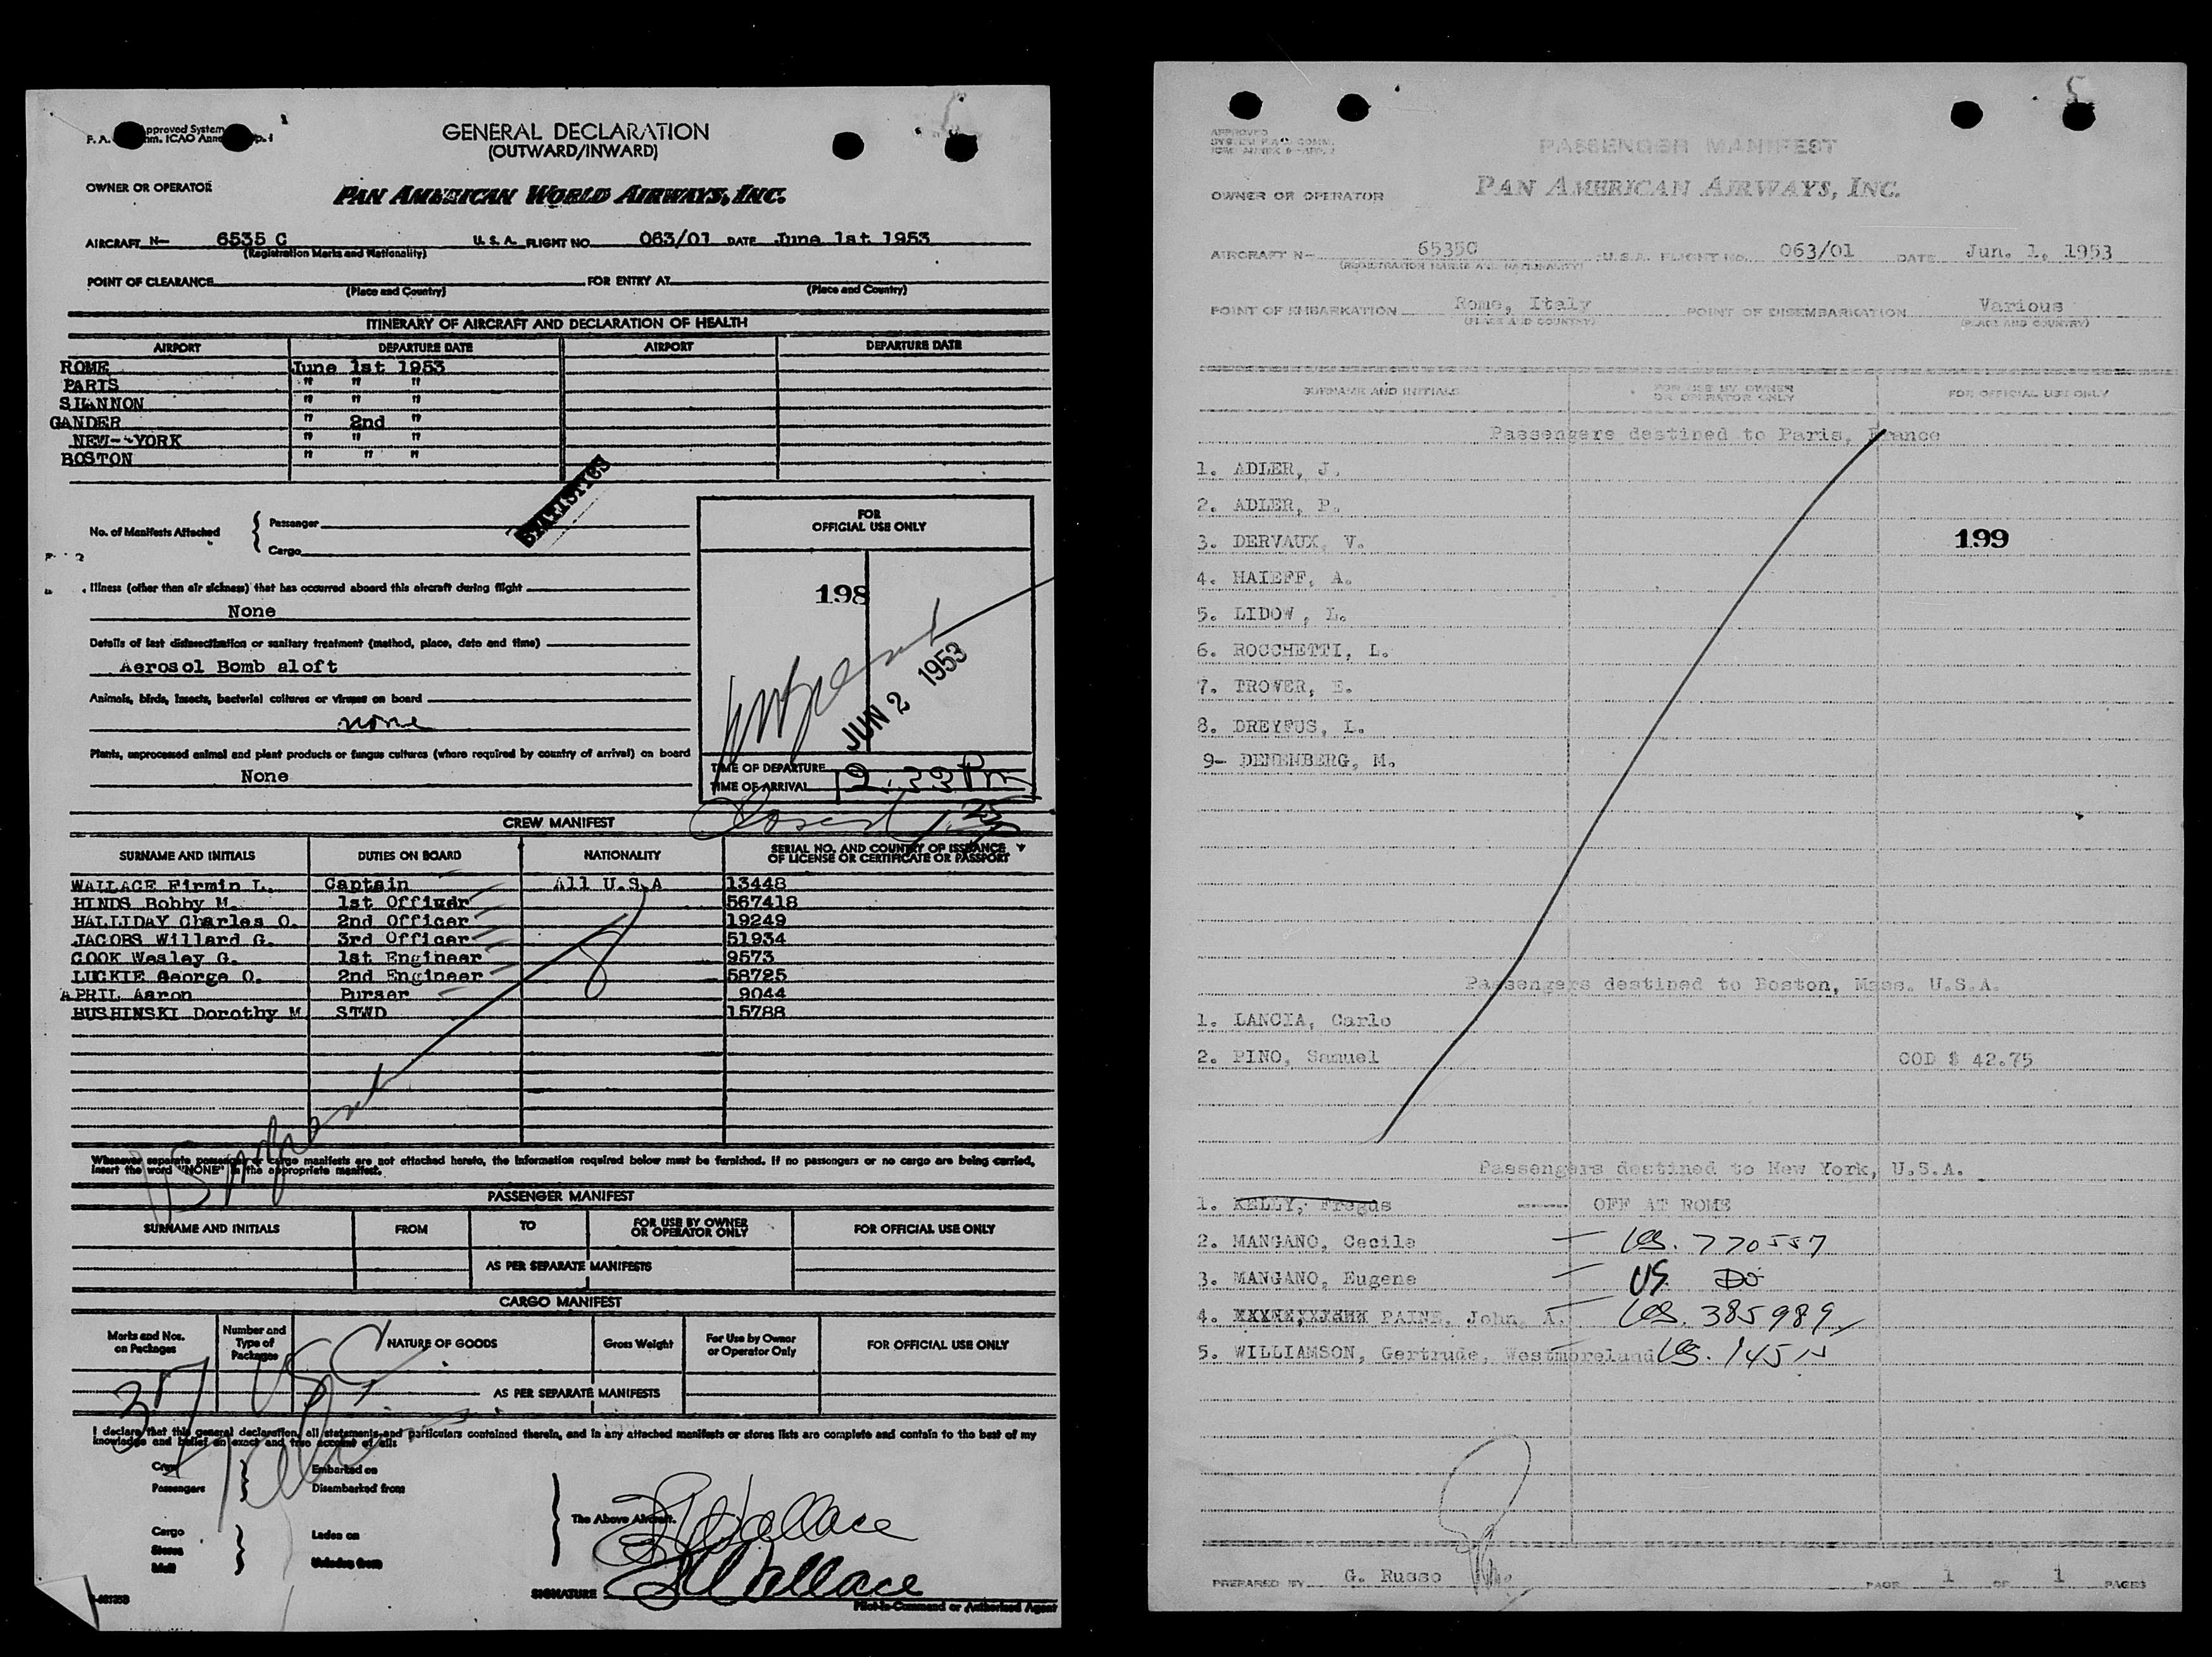 GENERAL DECLARATION
(OUTWARD/INWARD)
OWNER OR OPERATOR
PAN AMERICAN WORLD AIRWAYS, INC.
AIRCRAFT N- 6535 C U. S. A. FLIGHT NO. 063/01 DATE June 1st 1953
(Registration Marks and Nationality)
POINT OF CLEARANCE FOR ENTRY AT
(Place and Country) (Place and Country)
ITINERARY OF AIRCRAFT AND DECLARATION OF HEALTH
AIRPORT DEPARTURE DATE AIRPORT DEPARTURE DATE
ROME June 1st 1953
PARIS " " "
SHANNON " " "
GANDER " 2nd "
NEW--YORK " " "
BOSTON " " "
STATISTICS
No. of Manifests Attached { Passenger
Cargo
FOR
OFFICIAL USE ONLY
198
Illness (other than air sickness) that has occurred aboard this aircraft during flight
None
Details of last disinsectization or sanitary treatment (method, place, date and time)
Aerosol Bomb aloft
Animals, birds, insects, bacterial cultures or viruses on board
none
JUN 2 1953
Plants, unprocessed animal and plant products or fungus cultures (where required by country of arrival) on board
None
TIME OF DEPARTURE
TIME OF ARRIVAL 12:32 Pm
Closed
CREW MANIFEST
SURNAME AND INITIALS DUTIES ON BOARD NATIONALITY SERIAL NO. AND COUNTRY OF ISSUANCE
OF LICENSE OR CERTIFICATE OR PASSPORT
WALLACE Firmin L. Captain All U.S.A 13448
HINDS Bobby M. 1st Officer 567418
HALLIDAY Charles O. 2nd Officer 19249
JACOBS Willard G. 3rd Officer 51934
COOK Wesley G. 1st Engineer 9573
LUCKIE George O. 2nd Engineer 58725
APRIL Aaron Purser 9044
BUSHINSKI Dorothy M. STWD 15788
8
Whenever separate passenger or cargo manifests are not attached hereto, the information required below must be furnished. If no passengers or no cargo are being carried,
insert the word "NONE" in the appropriate manifest.
PASSENGER MANIFEST
SURNAME AND INITIALS FROM TO FOR USE BY OWNER
OR OPERATOR ONLY FOR OFFICIAL USE ONLY
AS PER SEPARATE MANIFESTS
CARGO MANIFEST
Marks and Nos.
on Packages Number and
Type of
Packages NATURE OF GOODS Gross Weight For Use by Owner
or Operator Only FOR OFFICIAL USE ONLY
AS PER SEPARATE MANIFESTS
I declare that this general declaration, all statements and particulars contained therein, and in any attached manifests or stores lists are complete and contain to the best of my
knowledge and belief an exact and true account of all:
Crew Embarked on
Passengers Disembarked from
The Above Aircraft.
Cargo Laden on
Stores
Mail Unladen from
SIGNATURE F L Wallace
Pilot-in-Command or Authorized Agent
PASSENGER MANIFEST
OWNER OR OPERATOR PAN AMERICAN AIRWAYS, INC.
AIRCRAFT N- 6535C U.S.A. FLIGHT NO. 063/01 DATE Jun. 1, 1953
(REGISTRATION MARKS AND NATIONALITY)
POINT OF EMBARKATION Rome, Italy POINT OF DISEMBARKATION Various
(PLACE AND COUNTRY) (PLACE AND COUNTRY)
SURNAME AND INITIALS FOR USE BY OWNER
OR OPERATOR ONLY FOR OFFICIAL USE ONLY
Passengers destined to Paris, France
1. ADLER, J.
2. ADLER, P.
3. DERVAUX, V. 199
4. HAIEFF, A.
5. LIDOW, L.
6. ROCCHETTI, L.
7. TROVER, E.
8. DREYFUS, L.
9- DENENBERG, M.
Passengers destined to Boston, Mass. U.S.A.
1. LANCIA, Carlo
2. PINO, Samuel COD $ 42.75
Passengers destined to New York, U.S.A.
1. KELLY, Fregus ------ OFF AT ROME
2. MANGANO, Cecile - US. 770557
3. MANGANO, Eugene - US. Do
4. PAINE, John, A. - US. 385989
5. WILLIAMSON, Gertrude, Westmoreland US.
PREPARED BY G. Russo PAGE 1 OF 1 PAGES